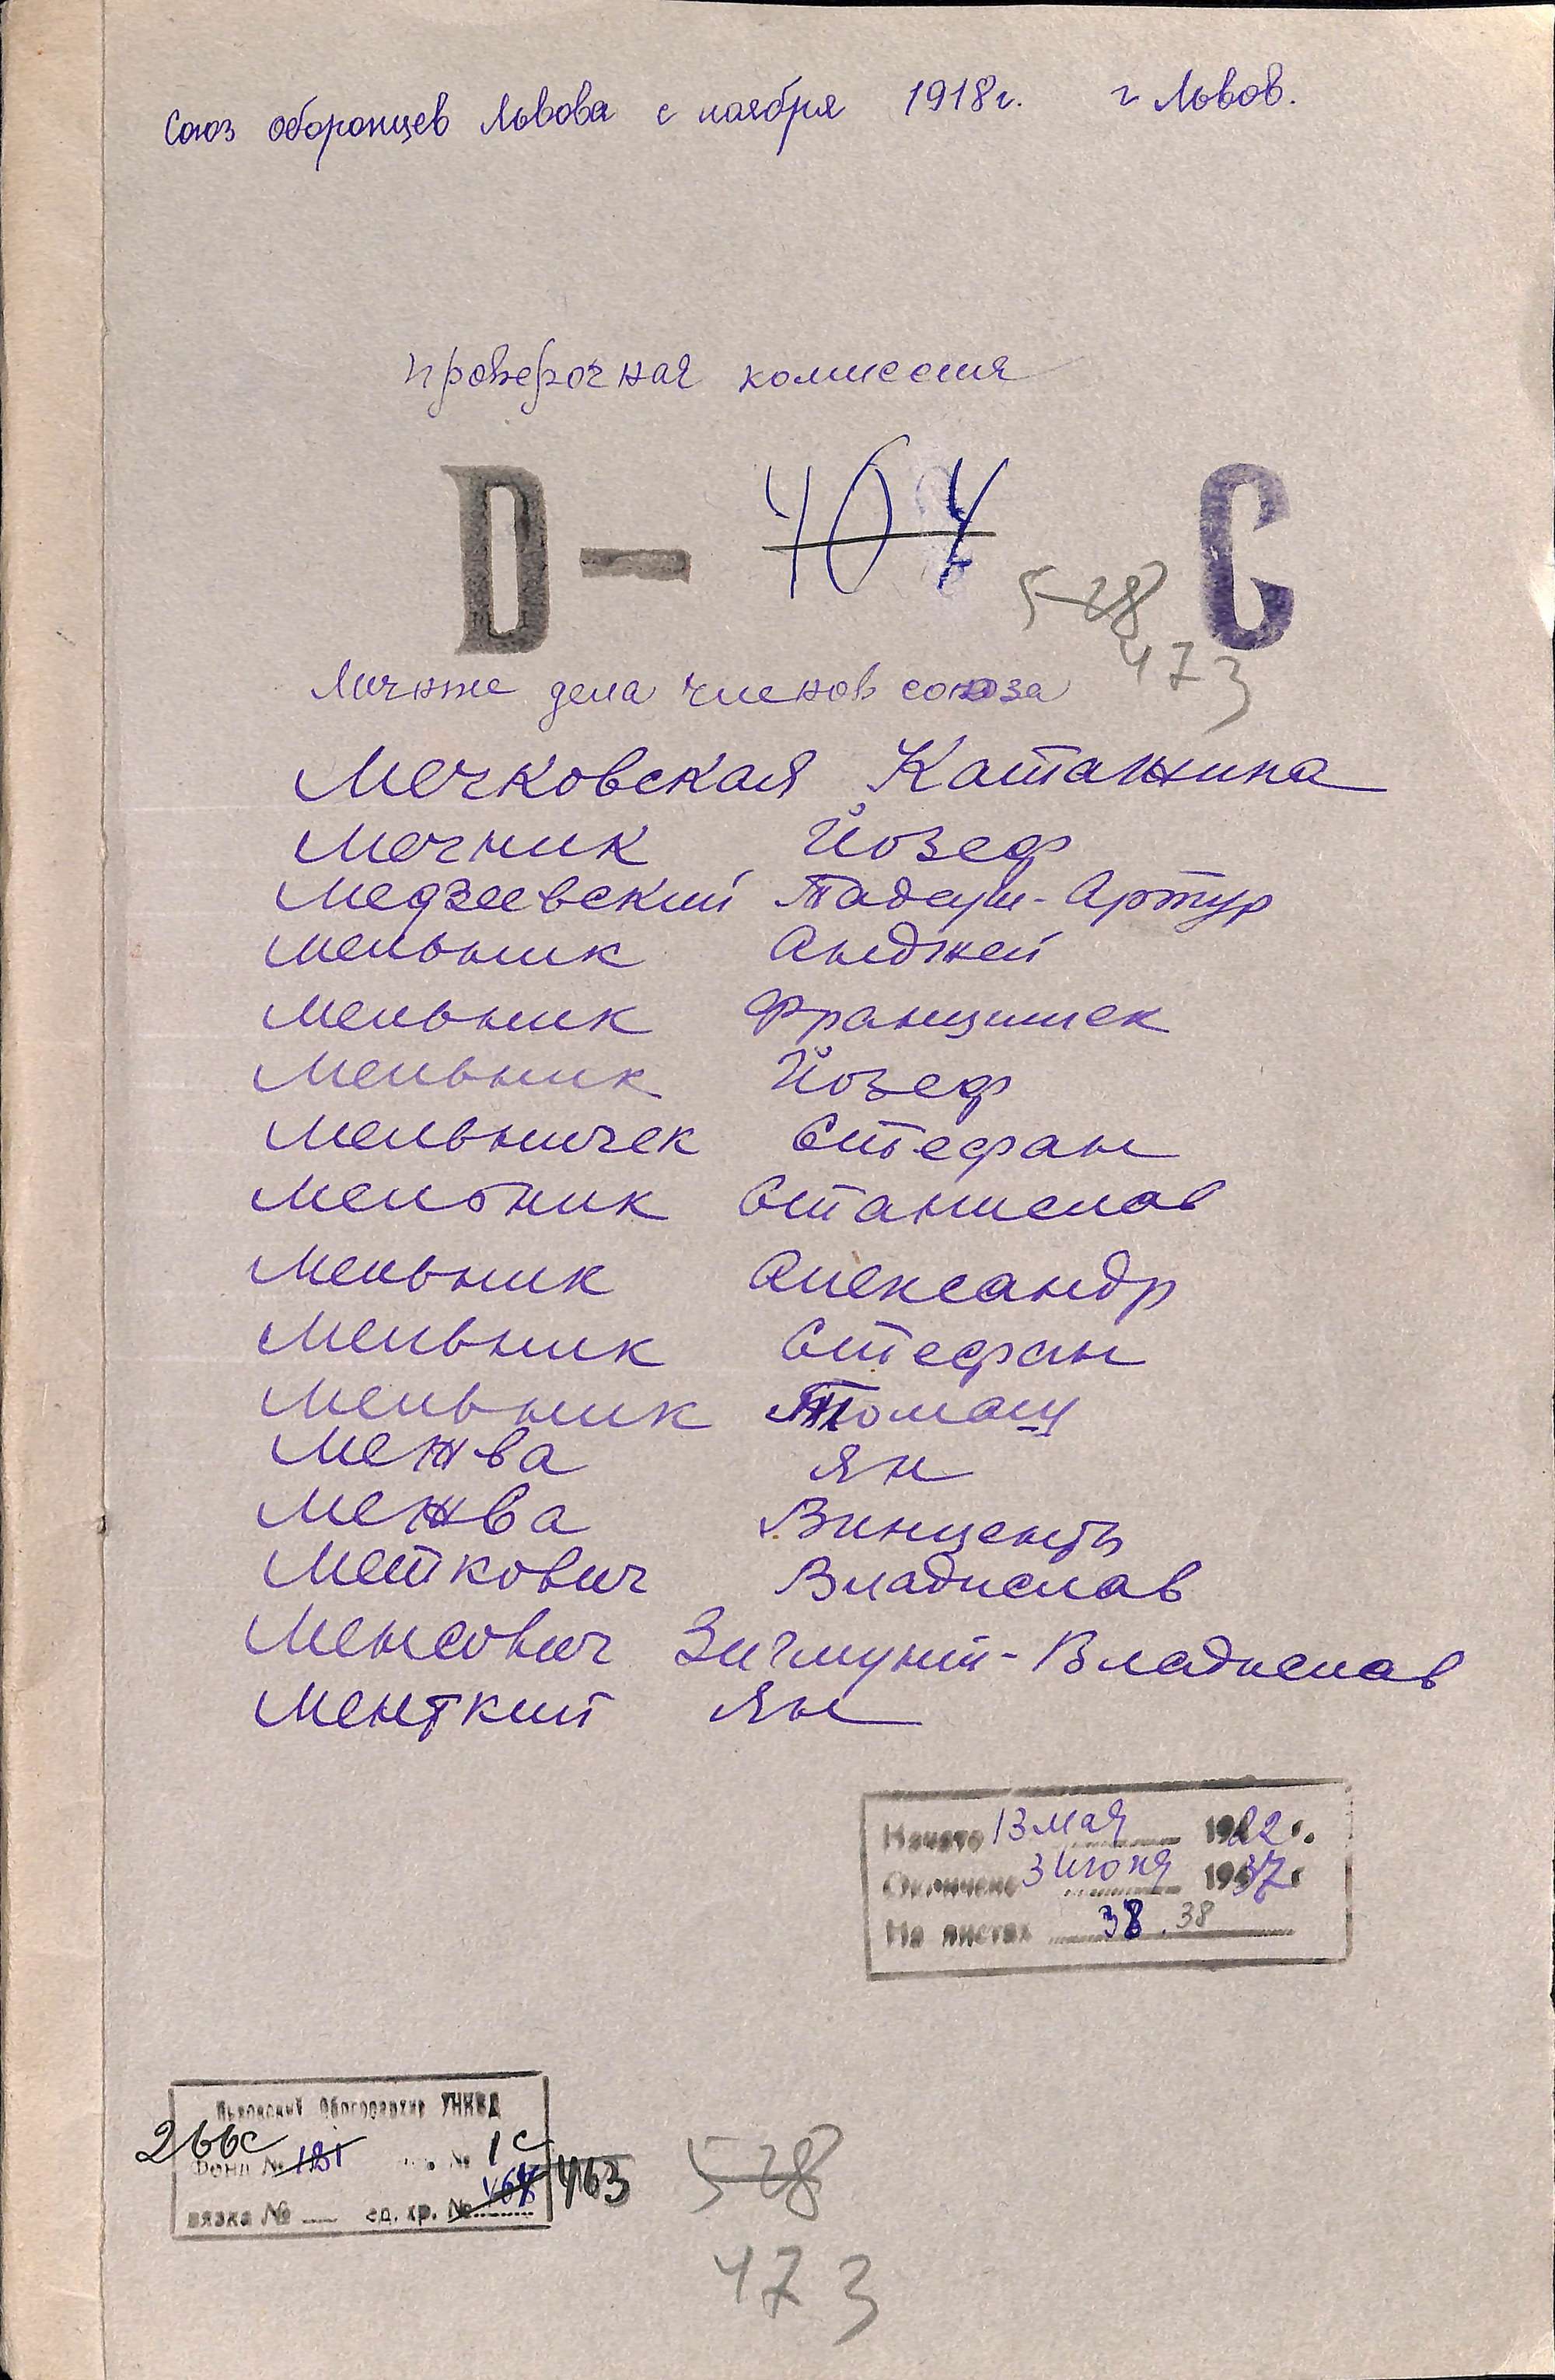 Союз оборонцев Львова с ноября 1918г. г Львов.
проверочная комиссия
D — 464 C
528
473
Личные дела членов союза
Мечковская Катажина
Мечник Йозеф
Медзеевский Тадеуш-Артур
Мельник Анджей
Мельник Францишек
Мельник Йозеф
Мельничек Стефан
Мельник Станислав
Мельник Александр
Мельник Стефан
Мельник Томаш
Менжва Ян
Межва Винценты
Меткович Владислав
Менсович Зигмунт-Владислав
Менткий Ян
Начато 13 мая 1922 г.
Окончено 3 июня 1937 г
На листах 38. 38
Львовский Облгосархив УНКВД
266с
Фонд № 181 № 1с
вязка № ед. хр. № 464 463
528
473